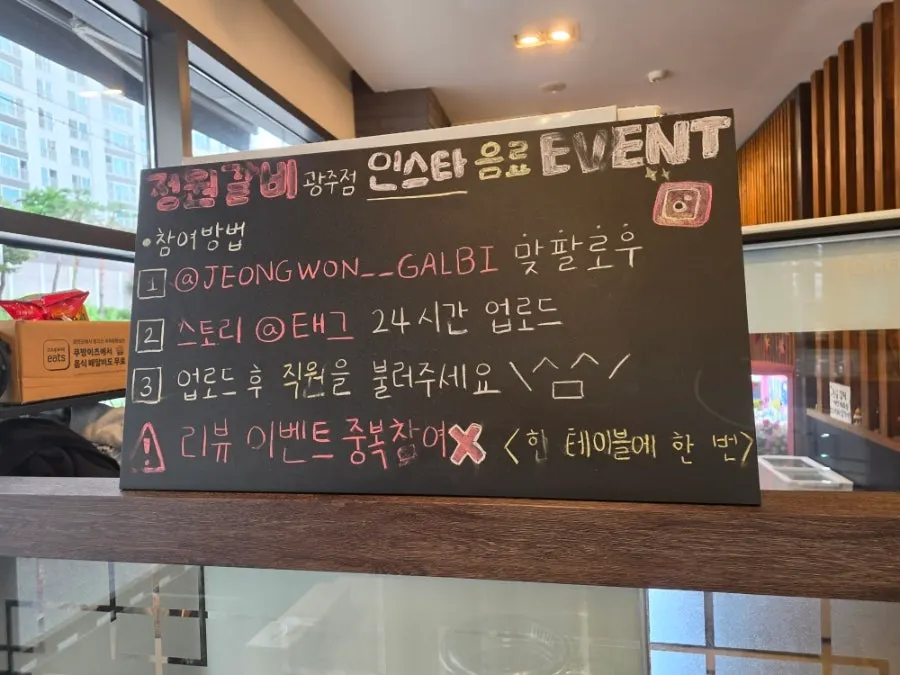 정원갈비 광주점 인스타 음료 EVENT
• 참여방법
1 @JEONGWON__GALBI 맞팔로우
2 스토리 @태그 24시간 업로드
3 업로드 후 직원을 불러주세요 \^ㅁ^/
! 리뷰 이벤트 중복참여 X <한 테이블에 한 번>
eats
쿠팡이츠에서
음식 배달비도 무료